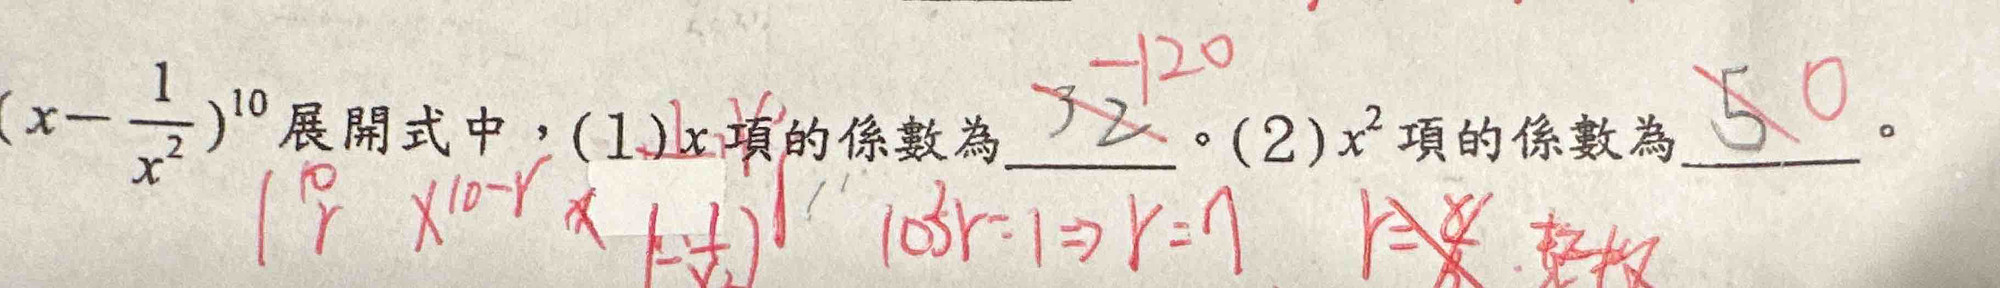 (x－1/x²)¹⁰展開式中，(1)x項的係數為 32 -120 。(2)x²項的係數為 5 0 。
10 r x^10-r x (-1/x²)^r 10-3r=1⇒r=7 r=